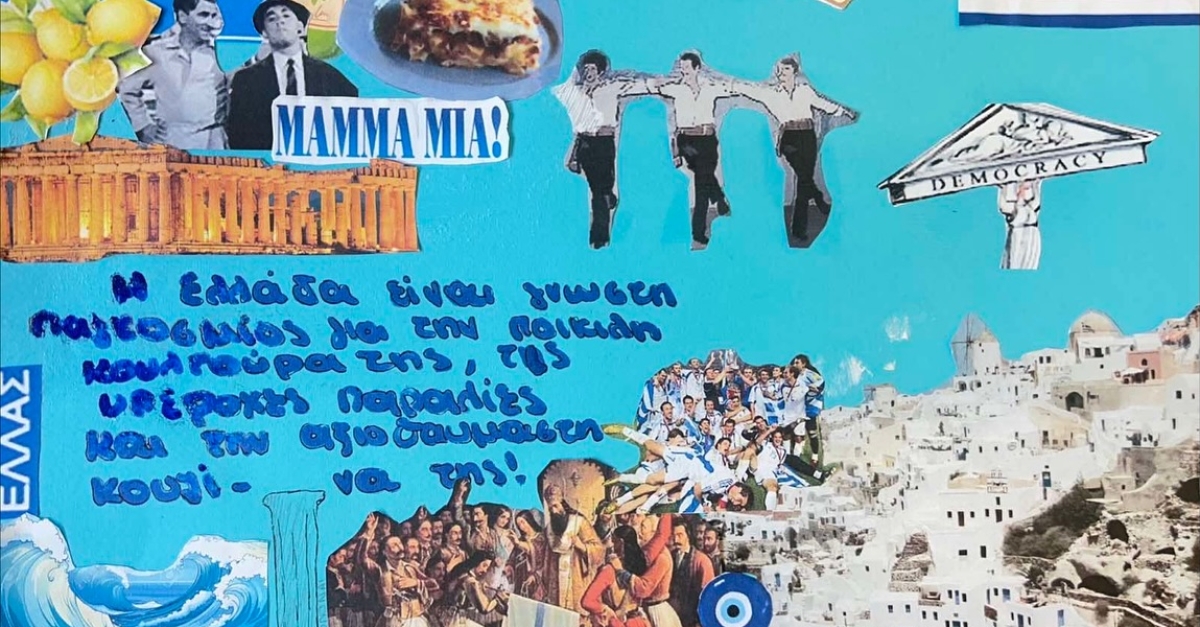 MAMMA MIA!
DEMOCRACY
Η Ελλάδα είναι γνωστη
παγκοσμίος για την ποικιλη
κουλτούρα της, τις
υπέροχες παραλίες
και την αξιοθαυμαστη
κουζί- να της!
ΕΛΛΑΣ